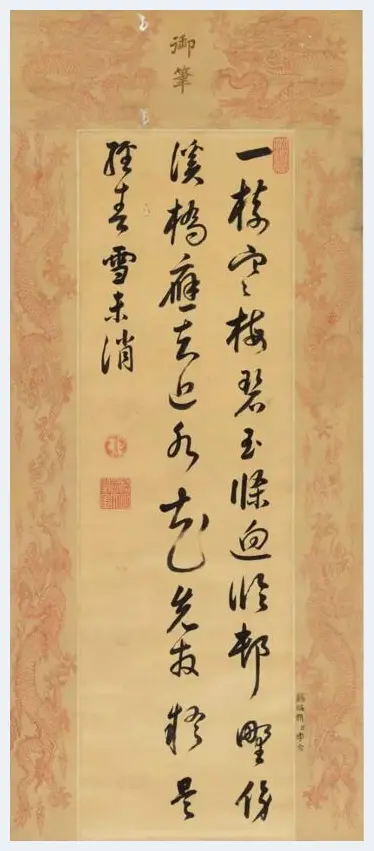 御筆
一樹寒梅碧玉條迥臨邨野傍
溪橋應知近水花先發疑是
經春雪未消